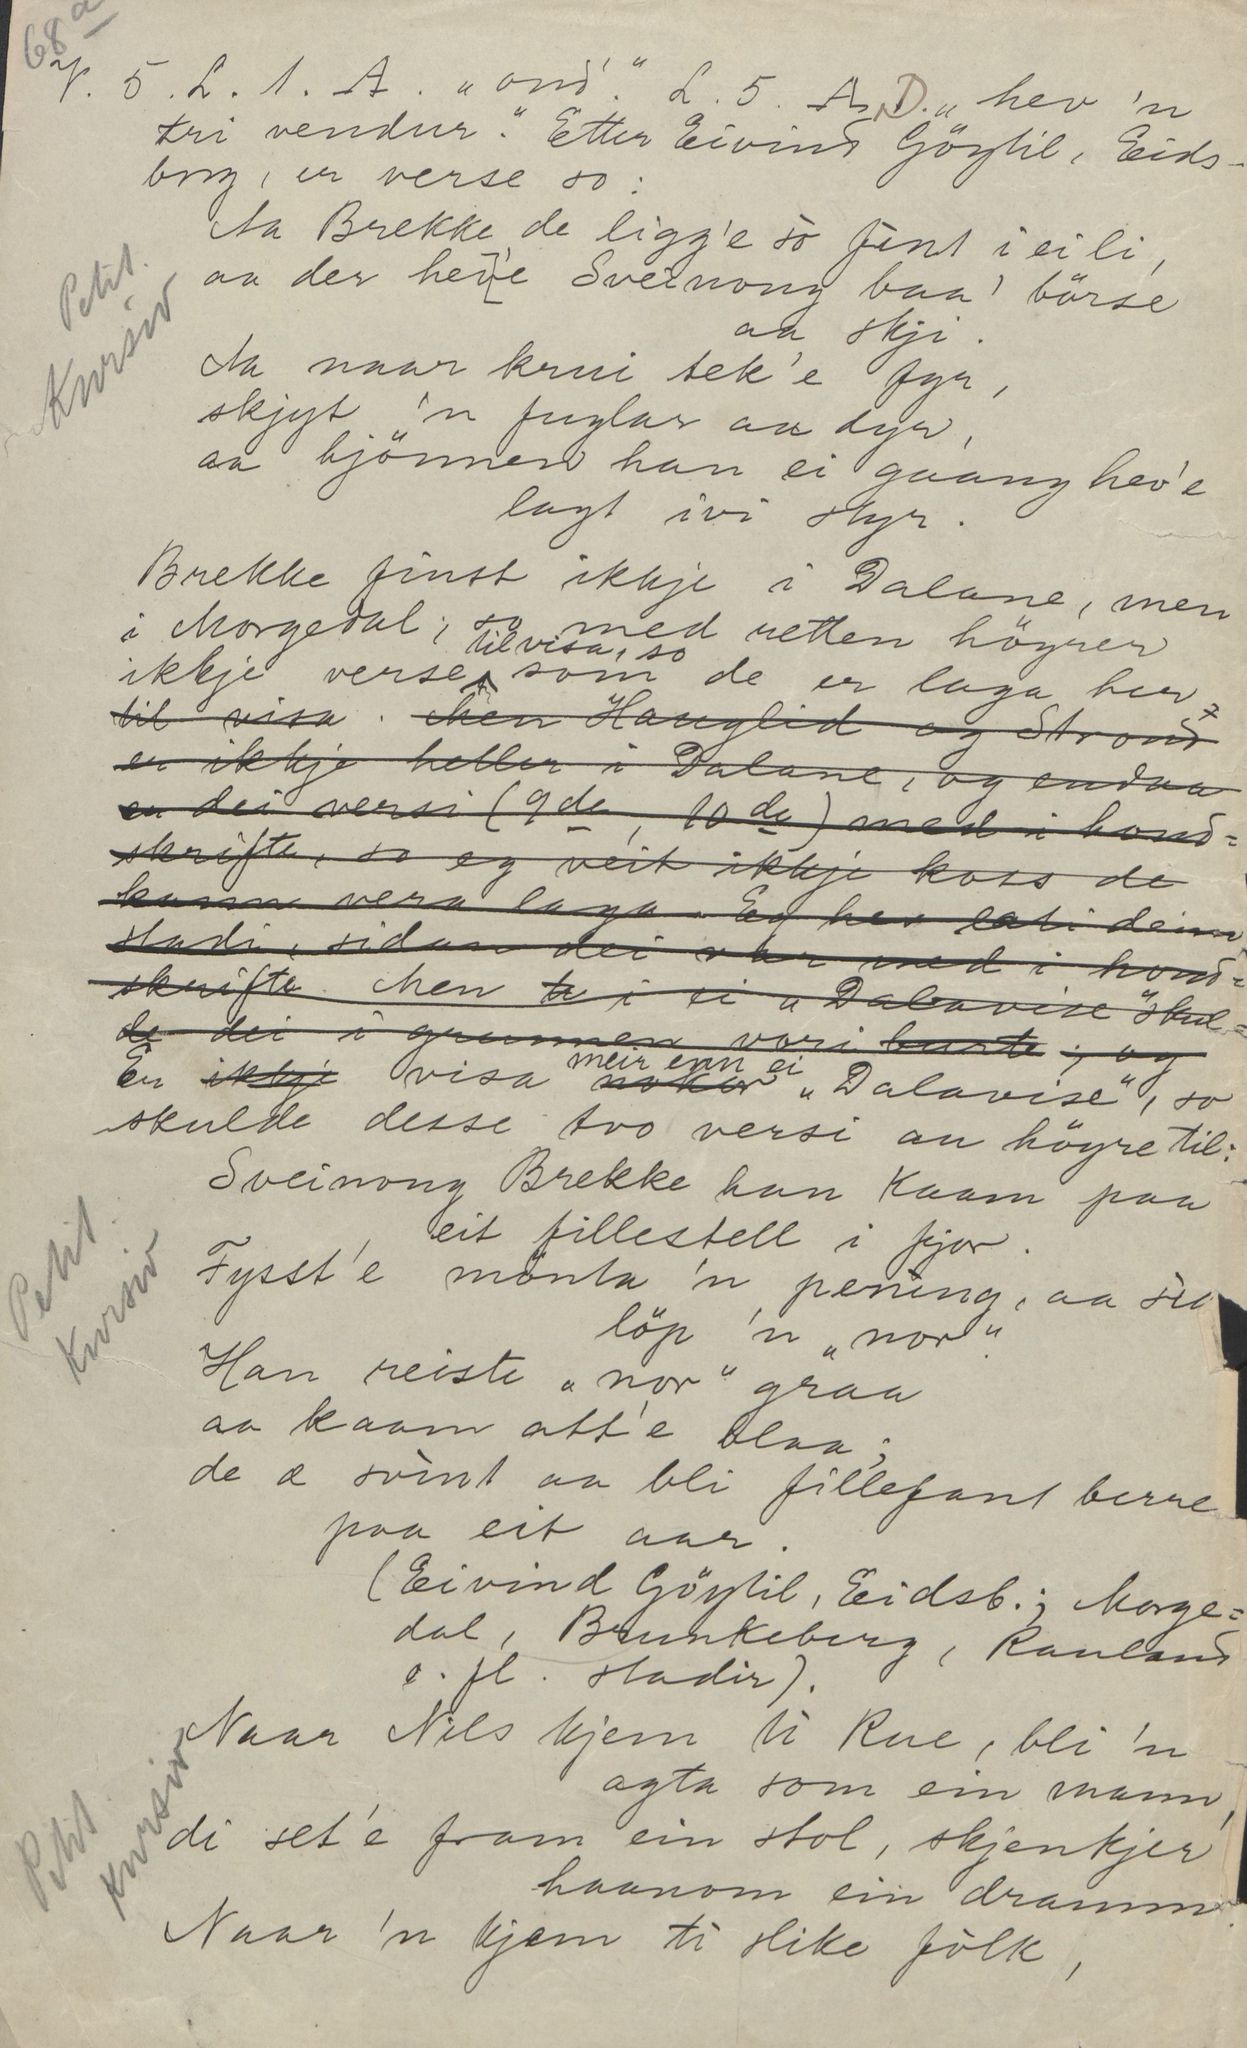 68a
V. 5. L. 1. A. "ond'." L. 5. A, D. "hev 'n
tri vendur." Etter Eivind Göytil, Eids-
borg, er verse so:
Aa Brekke de ligg'e sò fint i ei li,
aa der hev'e Sveinong baa' börse
aa skji.
Petit.
Kursiv
Aa naar krui tek'e fyr,
skjyt 'n fuglar aa dyr,
aa bjönnen han ei gaang hev'e
lagt ivi styr.
Brekke finst ikkje i Dalane, men
i Morgedal; so med retten höyrer
ikkje verse som de er laga her
til visa, so
til visa. Men Hauglid og Strond
er ikkje heller i Dalane, og endaa
er dei versi (9de, 10de) med i hond-
skrifta, so eg veit ikkje koss de
kann vera laga. Eg hev lati deim
stadi, sidan dei var med i hond-
skrifta. Men i ei "Dalavise" skul-
de dei i grunnen vori burte; og
Er ikkje visa nokor "Dalavise", so
meir enn ei
skulde desse tvo versi au höyre til:
Sveinong Brekke han kaam paa
eit fillestell i fjor.
Petit.
Kursiv
Fysst'e mönta 'n pening, aa sea
löp 'n "nor".
Han reiste "nor" graa
aa kaam att'e blaa;
de æ svint aa bli fillefant berre
paa eit aar.
(Eivind Göytil, Eidsb.; Morge-
dal, Brunkeberg, Rauland
o. fl. stadir).
Naar Nils kjem ti Rue, bli 'n
agta som ein mann,
Petit.
Kursiv
di set'e fram ein stol, skjenkjer
haanom ein dramm.
Naar 'n kjem ti slike fòlk,